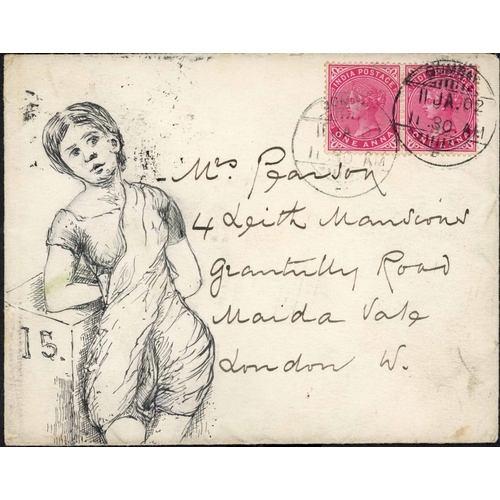 INDIA POSTAGE
ONE ANNA
11 JA.02
11.30 AM
Mrs Pearson
4 Leith Mansions
Grantully Road
Maida Vale
London W.
15.